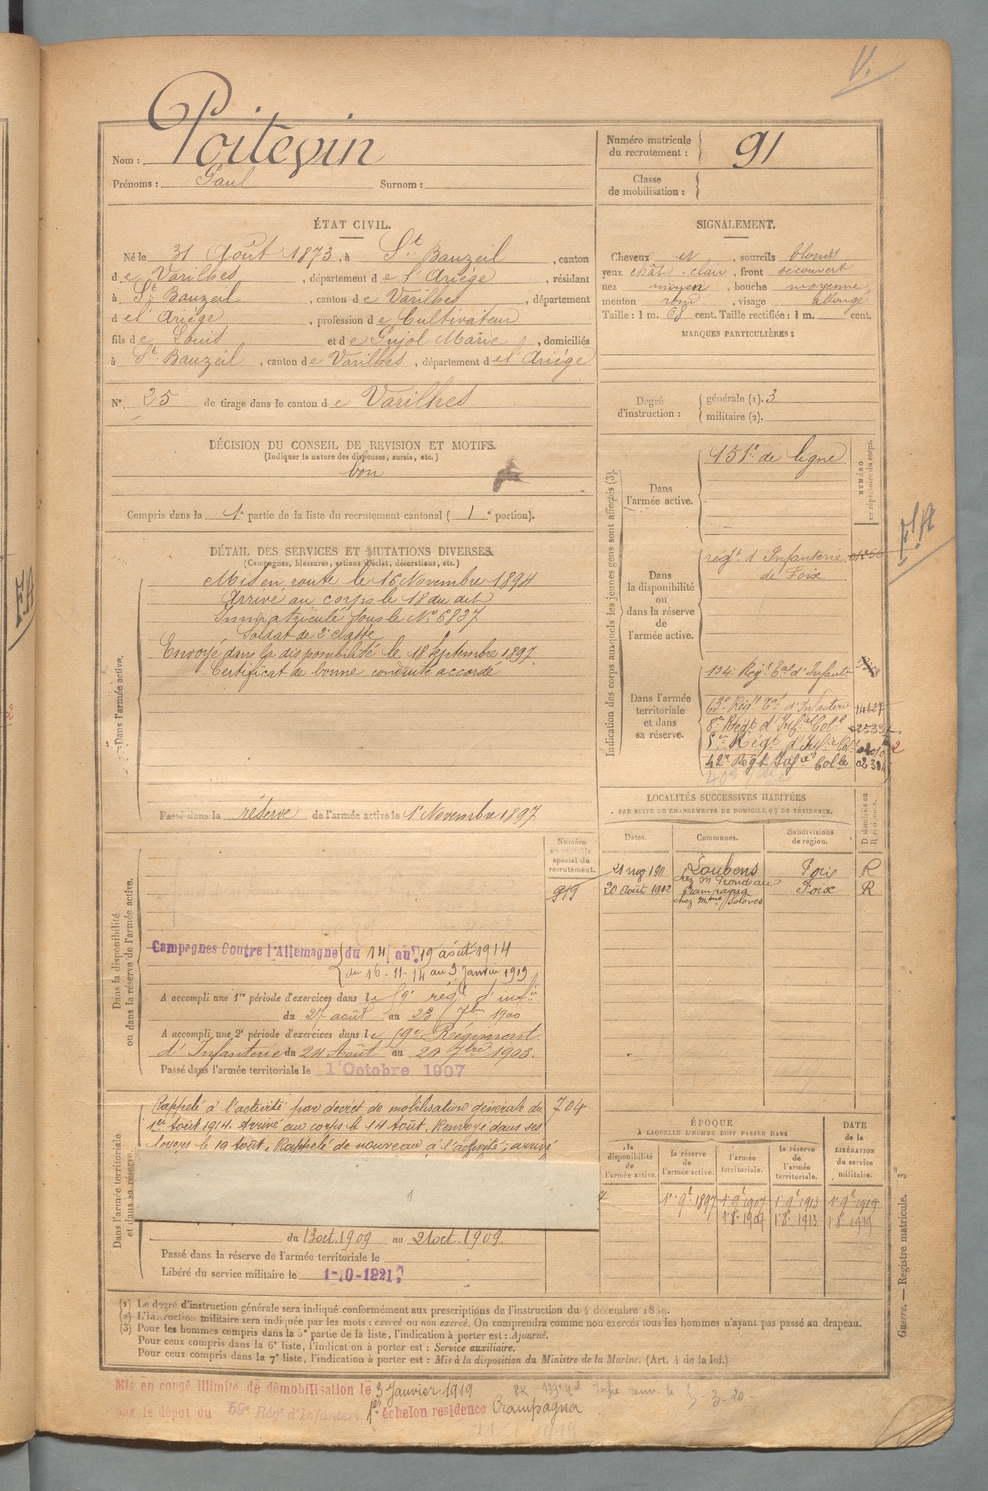 V.
Nom : Poitevin
Prénoms : Paul Surnom :
Numéro matricule du recrutement : 91
Classe de mobilisation :
ÉTAT CIVIL.
Né le 31 Août 1873, à St Bauzeil, canton
de Varilhes, département de l'Ariège, résidant
à St Bauzeil, canton de Varilhes, département
de l'Ariège, profession de Cultivateur
fils de Louis et de Pujol Marie, domiciliés
à St Bauzeil, canton de Varilhes, département de l'Ariège
N° 25 de tirage dans le canton de Varilhes
SIGNALEMENT.
Cheveux et, sourcils blonds
yeux chât. clair, front découvert
nez moyen, bouche moyenne,
menton rond, visage allongé
Taille : 1 m. 68 cent. Taille rectifiée : 1 m. cent.
MARQUES PARTICULIÈRES :
Degré d'instruction : générale (1). 3
militaire (2).
DÉCISION DU CONSEIL DE REVISION ET MOTIFS.
(Indiquer la nature des dispenses, sursis, etc.)
bon
Compris dans la 1e partie de la liste du recrutement cantonal ( 1e portion).
DÉTAIL DES SERVICES ET MUTATIONS DIVERSES.
(Campagnes, blessures, actions d'éclat, décorations, etc.)
Dans l'armée active.
Mis en route le 16 Novembre 1894
Arrivé au corps le 18 du dit
Immatriculé sous le N° 6837
Soldat de 2e classe
Envoyé dans la disponibilité le 18 Septembre 1897
Certificat de bonne conduite accordé
Passé dans la réserve de l'armée active le 1er Novembre 1897
Indication des corps auxquels les jeunes gens sont affectés (3).
NUMÉRO au répertoire du corps.
Dans l'armée active.
151e de ligne
Dans la disponibilité ou dans la réserve de l'armée active.
régt d'Infanterie
de Foix
Dans l'armée territoriale et dans sa réserve.
134e Régt Tal d'Infanterie
63e Régt Tal d'Infanterie
8e Régt d'Infrie Cole
5e Régt d'Infrie Cole
42e Régt Infrie Cole
LOCALITÉS SUCCESSIVES HABITÉES
PAR SUITE DE CHANGEMENTS DE DOMICILE OU DE RÉSIDENCE.
Dates. Communes. Subdivisions de région. D domicile ou R résidence.
Loubens Foix R
20 Août 1902 Crampagna Foix R
Dans la disponibilité ou dans la réserve de l'armée active.
Numéro au contrôle spécial du recrutement.
919
Campagnes Contre l'Allemagne du 14 au 19 août 1914
du 16-11-14 au 3 Janvier 1919
A accompli une 1re période d'exercices dans le 59e régt d'infie
du 27 août au 23 7bre 1900
A accompli une 2e période d'exercices dans le 59e Régiment
d'Infanterie du 24 Août au 20 7bre 1903.
Passé dans l'armée territoriale le 1 Octobre 1907
Dans l'armée territoriale et dans sa réserve.
Rappelé à l'activité par décret de mobilisation générale du 704
1er Août 1914. Arrivé au corps le 14 Août. Renvoyé dans ses
foyers le 19 Août. Rappelé de nouveau à l'activité, arrivé
1
du 13 oct 1909 au 21 oct. 1909
Passé dans la réserve de l'armée territoriale le
Libéré du service militaire le 1-10-1921
ÉPOQUE
À LAQUELLE L'HOMME DOIT PASSER DANS
DATE de la LIBÉRATION du service militaire.
la disponibilité de l'armée active. la réserve de l'armée active. l'armée territoriale. la réserve de l'armée territoriale.
1er 9e 1897 1er 9e 1907 1er 9e 1913 1er 9e 1919
1 8e 1907 1 8e 1913 1 8e 1919
(1) Le degré d'instruction générale sera indiqué conformément aux prescriptions de l'instruction du 4 décembre 1889.
(2) L'instruction militaire sera indiquée par les mots : exercé ou non exercé. On comprendra comme non exercés tous les hommes n'ayant pas passé au drapeau.
(3) Pour les hommes compris dans la 5e partie de la liste, l'indication à porter est : Ajourné.
Pour ceux compris dans la 6e liste, l'indication à porter est : Service auxiliaire.
Pour ceux compris dans la 7e liste, l'indication à porter est : Mis à la disposition du Ministre de la Marine. (Art. 4 de la loi.)
Guerre. — Registre matricule. 3
Mis en congé illimité de démobilisation le 3 Janvier 1919
par le dépôt du 59e Rég. d'Infanterie 1er échelon residence Crampagna